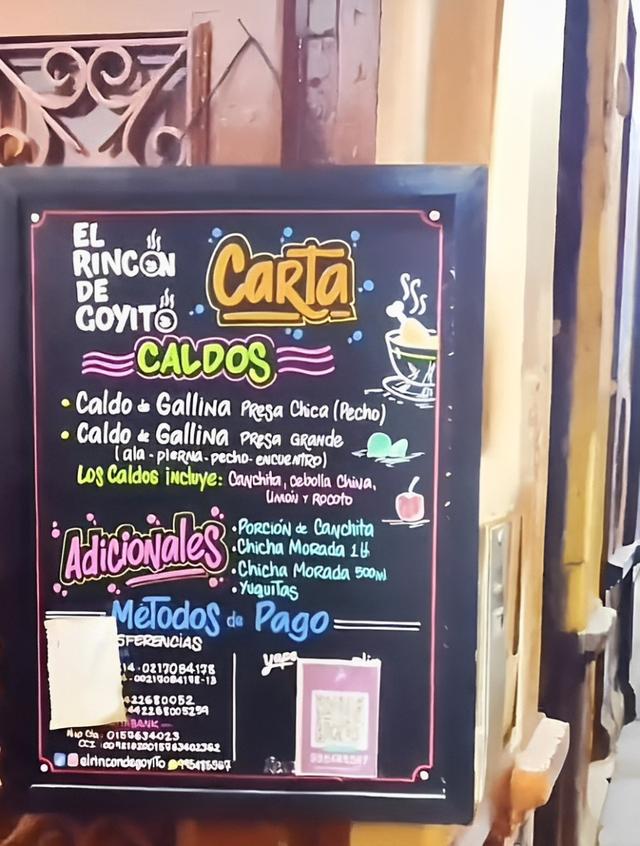 EL
RINCÓN
DE
GOYITO
CARTA
CALDOS
• Caldo de Gallina Presa Chica (Pecho)
• Caldo de Gallina Presa Grande
(ala - pierna - pecho - encuentro)
Los Caldos incluye: Canchita, cebolla China,
Limón y Rocoto
Adicionales
• Porción de Canchita
• Chicha Morada 1 Lt
• Chicha Morada 500ml
• Yuquitas
Métodos de Pago
SFERENCIAS
yape
0159634023
elrincondegoyito